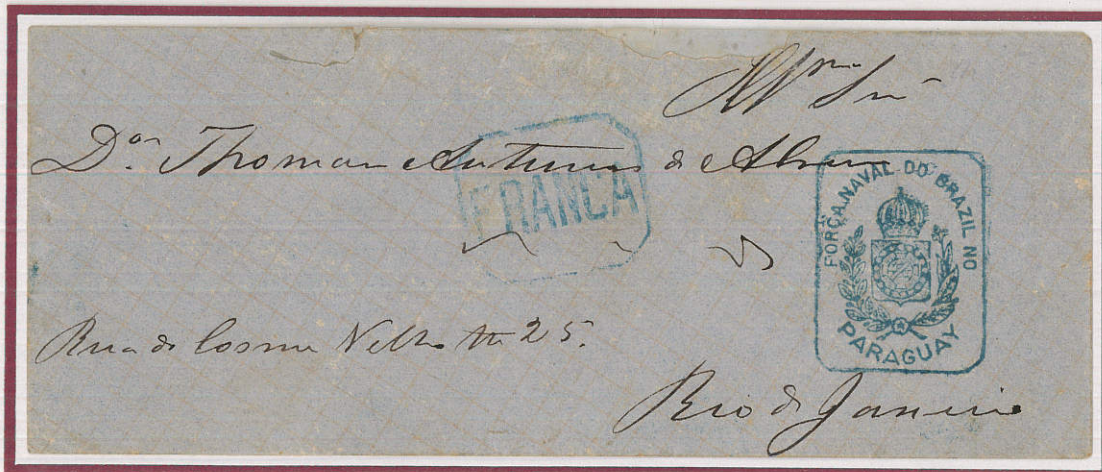 Illmo Snr
Dor Thomas Antunes de Abreu
FRANCA
FORÇA NAVAL DO BRAZIL NO
PARAGUAY
Rua do Cosme Velho No 25.
Rio de Janeiro